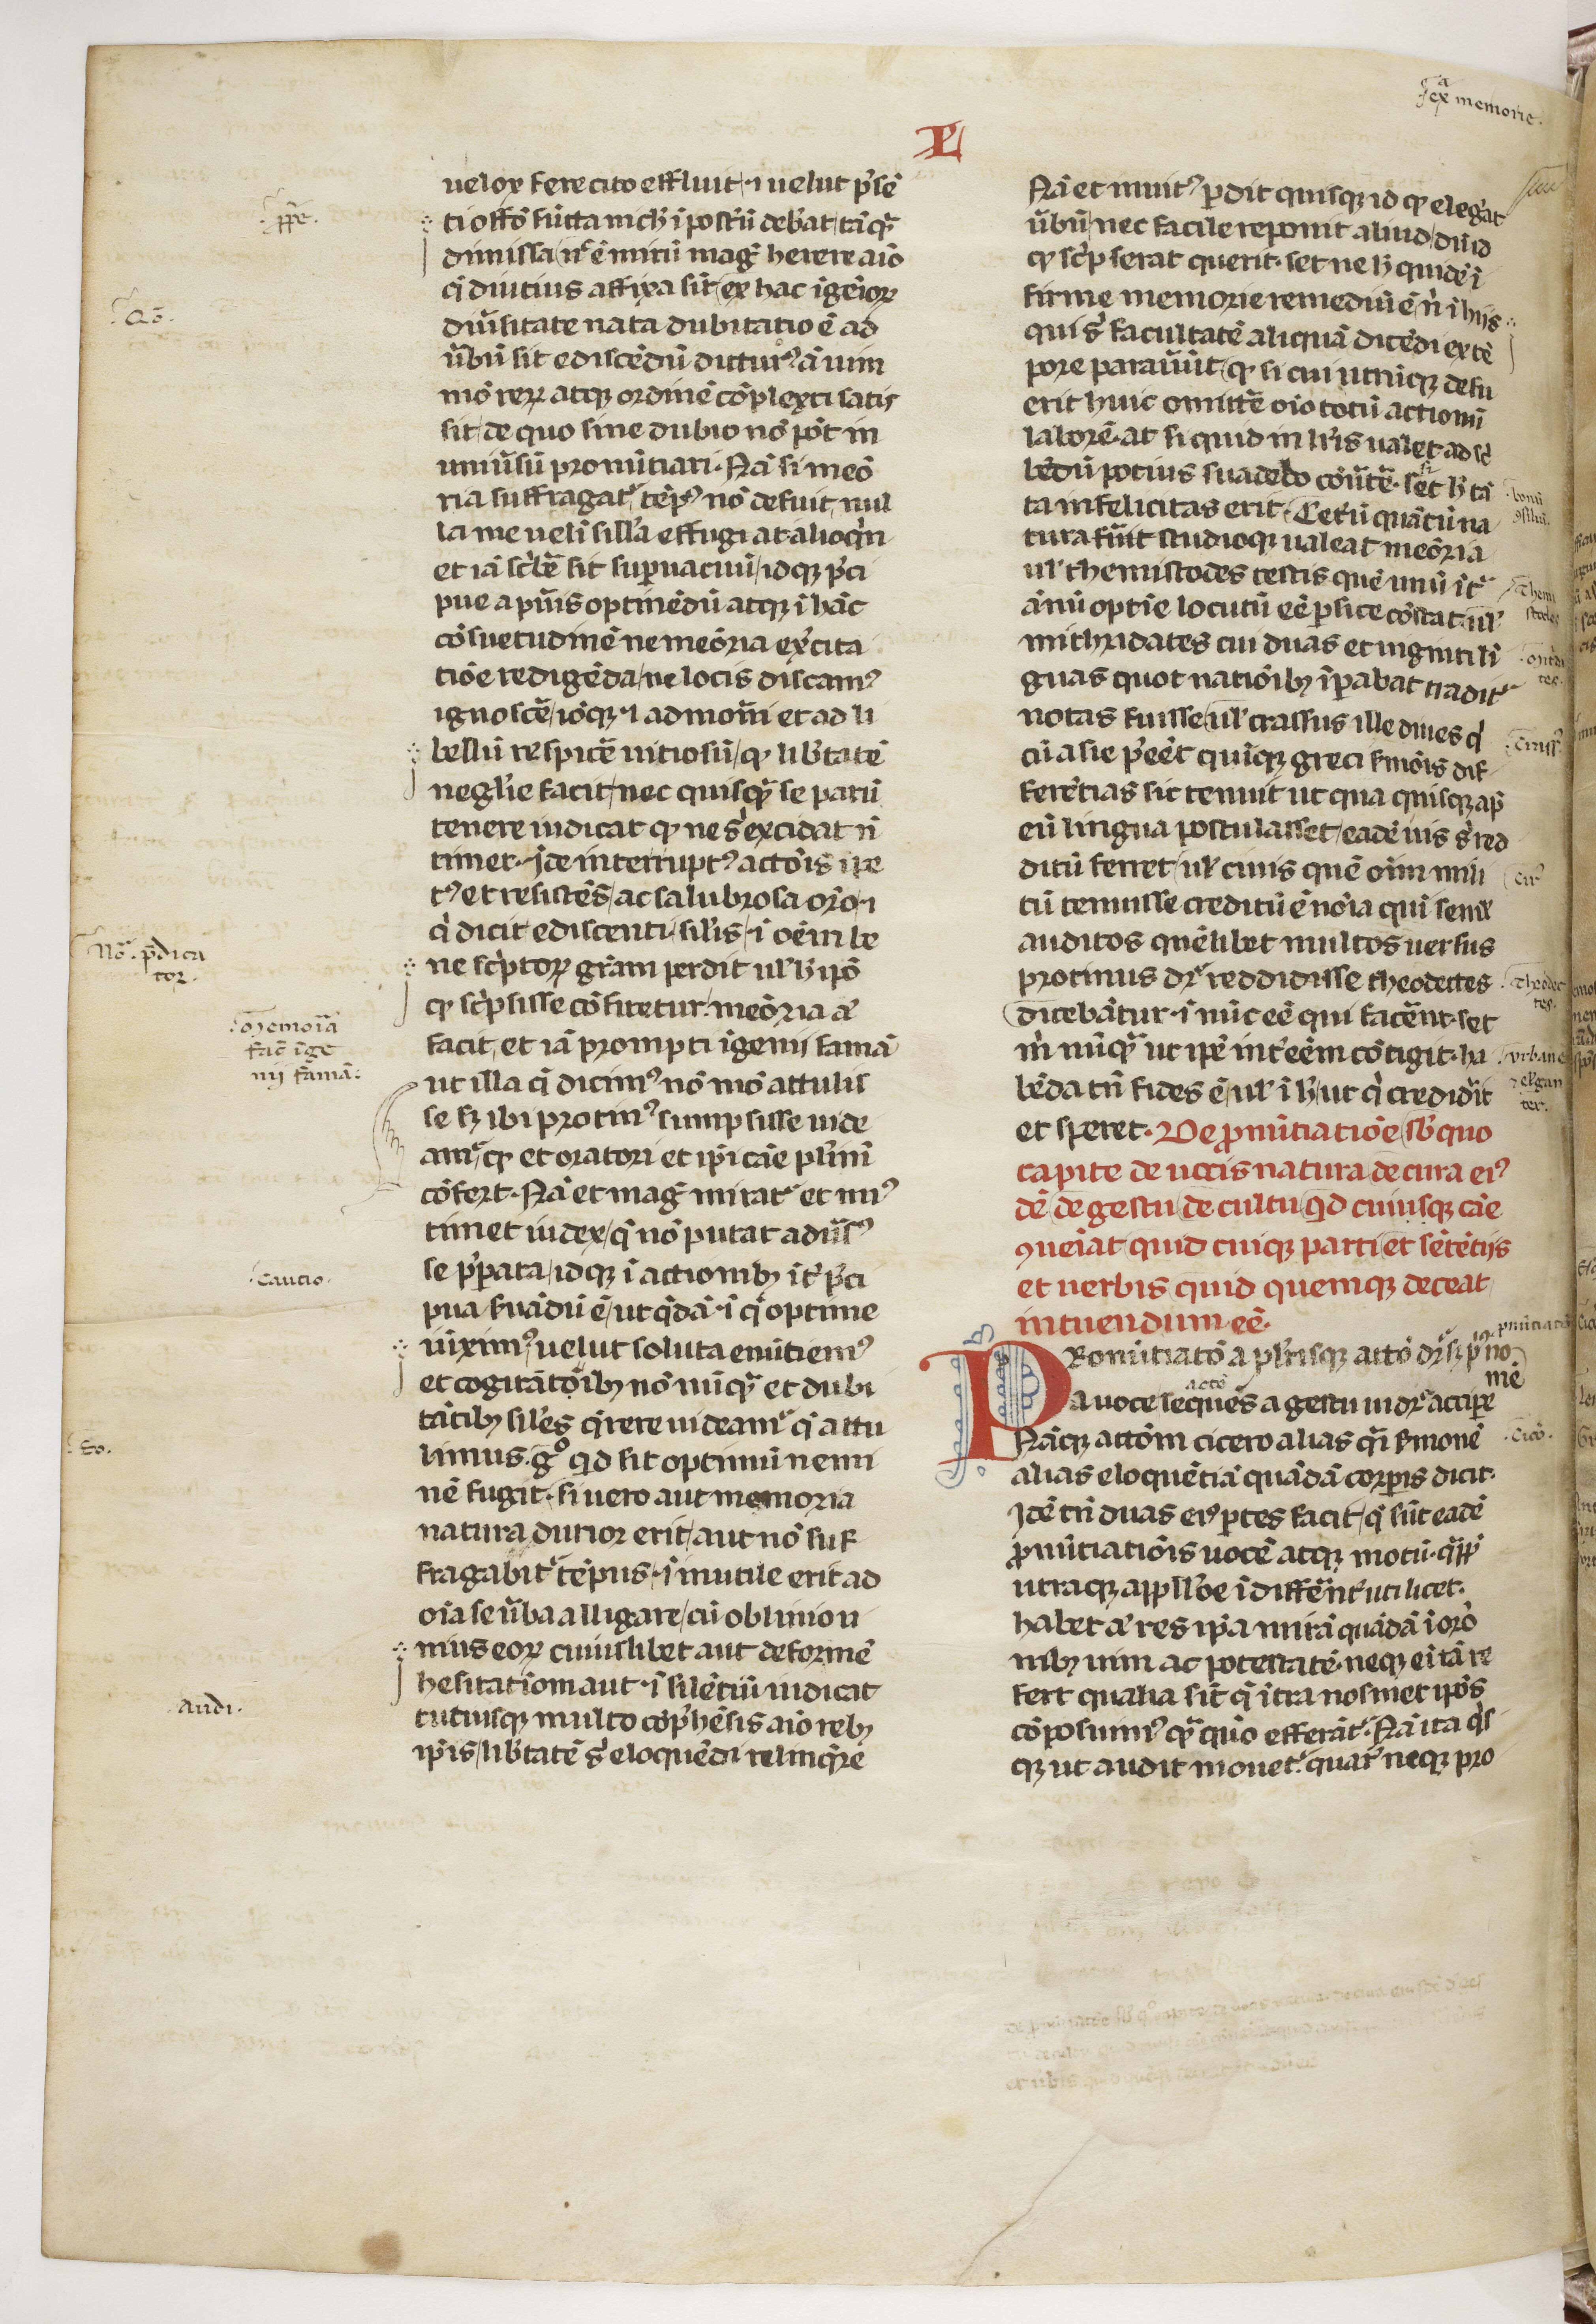 L
Jex memorie.
uelox fere cito effluit / ⁊ uelut p̄sē
ti offō fūcta nich̓ ī post̓ū deb̓at / tāqȝ
dimissa / n̄ ē mirū mag̓ herere aīo
q̄ diutius affixa sūt / ex hac īgēioꝝ
diu̓sitate nata dubitatio ē ad
u̓bū sit ediscēdū dictur̓ꝰ ā uim
mō reꝝ atqȝ ordinē cōplecti satis
sit / de quo sine dubio nō pōt in
uniu̓sū pronūtiari · Nā si meō
ria suffragat̓ / tēpꝰ nō defuit / nul
la me uelī sill̓a effugiat alioqͥn
et iā sc̓bē sit sup̄uacuū / idqȝ p̄ci
pue a pu̓is optinēdū atqȝ ī hāc
cōsuetudinē memōria exc̓ita
tiōe redigēda / ne locis discamꝰ
ignosce̓ / iōqȝ ⁊ admon̓i et ad li
bellū respice̓ uitiosū / qͥ lib̓tatē
neglīe facit / nec quisqȝ se parū
tenere iudicat qͥ ne sͥ excidat nō
timet · Jde interruptꝰ actōis īpe
tꝰ et resistēs / ac salubrosa orō · ⁊
q̄ dicit ediscenti sil̓is / ī oēm be
ne sc̓ptoꝝ gr̄am perdit ul̓ hͦ ip̄o
qͥ sc̓psisse cōfitetur / meōria āt
facit / et iā prompti īgenij famā
ut illa q̄ dicimꝰ nō mō attulis
se sȝ ibi protinꝰ sumpsisse uide
am̓ / qͥ et oratori et ip̄i cāe pl̓imū
cōfert · Nā et mag̓ mirat̓ et miꝰ
timet iudex / q̄ nō putat adu̓sꝰ
se p̄parata / idqȝ ī actionibȝ īt̓ p̄ci
pua s̓uādū ē / ut q̄dā ⁊ q̄ optime
uīximꝰ / uelut soluta enūtiemꝰ
et cogitātōibȝ nō nūqȝ et dubi
tātibȝ sil̓es q̄rere uideam̓ q̄ attu
limus · gͦ qd sit optimū nemi
nē fugit · si uero aut memoria
natura durior erit / aut nō suf
fragabit̓ tēpus / ī inutile erit ad
oīa se u̓ba alligare / cū obliuio u
niuseoꝝ cuiuslibet aut deformē
hesitatiōem aut ⁊ silētiū iudicat
tutiusqȝ multo cōp̄hēsis aīo rebȝ
ip̄is / lib̓tatē sͥ eloquēdi relinq̄re
Nā et inuitꝰ p̄dit quisqȝ id qͥ eleg̓at
u̓bū / nec facile reponit aliud / dū id
qͥ sc̓pserat querit · set ne hͦ quidē ī
firme memorie remediū ē nͥ ī hijs
qui sͥ facultatē aliquā dicēdi ex tē
pore parau̓ūt / qͥ si cui utrūqȝ defu
erit huic omitte̓ oīo totū actionū
laborē · at si quid in lr̄is ualet ad sc̓
bēdū potius suadebo cōu̓te̓ · set hͦ rā
ra infelicitas erit · Cet̓ū quātū na
tura fu̓it studioqȝ ualeat meōria
ul̓ themistocles testis quē unū īt̓
ānū optīe locutū eē p̄sice cōstat · ul̓
mithridates cui duas et uigniti lī
guas quot natiōibȝ īp̄abat tradit̓
notas fuisse / ul̓ crassus ille diues qͥ
cū asie p̄eēt quīqȝ greci s̓mōis dif
ferētias sic tenuit ut qua quisqȝ ap̄
eū lingua postulasset / eadē ius sͥ red
ditū ferret / ul̓ cirus quē oīm mili
tū tenuisse creditū ē noīa qui semel
auditos quēlibet multos uersus
protinus dr̄ reddidisse theodectes
dicebātur · ⁊ nūc eē qui face̓nt · set
mͥ nūqȝ ut ip̄e int̓eēm cōtigit · ha
bēda tn̄ fides ē / ul̓ ī hͦ / ut qͥ credid̓it
et speret · De p̄nūtiatiōe / sb̓ quo
capite de uocis natura de cura eiꝰ
dē / de gestu / de cultu / qͥd cuiusqȝ cāe
ꝯueīat / quid cuiqȝ parti et sētētijs
et uerbis quid quemqȝ deceat
intuendum eē ·
Pronūtiatō a pl̓isqȝ actō dr̄ / sȝ p̄ꝰ no
mē
a uoce sequēs a gestu uidr̄ accip̄e
actō
Nāqȝ actōm cicero alias q̄i s̓monē
alias eloquētiā quādā corp̄is dicit ·
Jdē tn̄ duas eiꝰ p̄tes facit / q̄ sūt eadē
p̄nūtiatiōis uocē atqȝ motū · qͣp̄p̄
utraqȝ app̄ll̓oe īdiffe̓nt̓ uti licet ·
habet āt res ip̄a mirā quādā ī orō
nibȝ uim ac potestatē · neqȝ eī tā re
fert qualia sīt q̄ ītra nosmet ip̄os
cōposuimꝰ qȝ quō efferāt̓ · Nā ita qͥs
qȝ ut audit mouet̓ · quar̓ neqȝ pro
Nō · p̄dica
tor ·
memoīa
facͥ īge
nij famā ·
cautio ·
audi ·
bonū
ꝯsiliū ·
Themi
stocles
mitͥda
tes ·
crassꝰ
cirꝰ
Theodec
tes ·
vrbane
⁊ elegan
ter ·
p̄nūtiatō
cicō ·